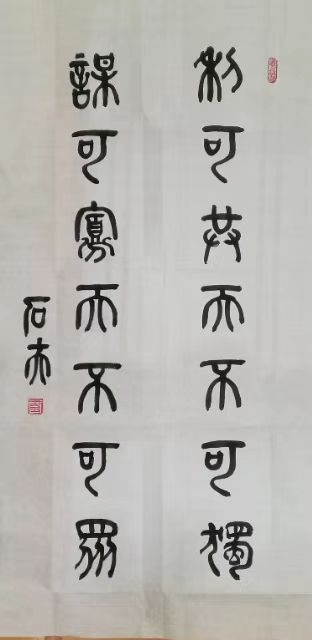 利可共而不可獨
謀可寡而不可眾
石